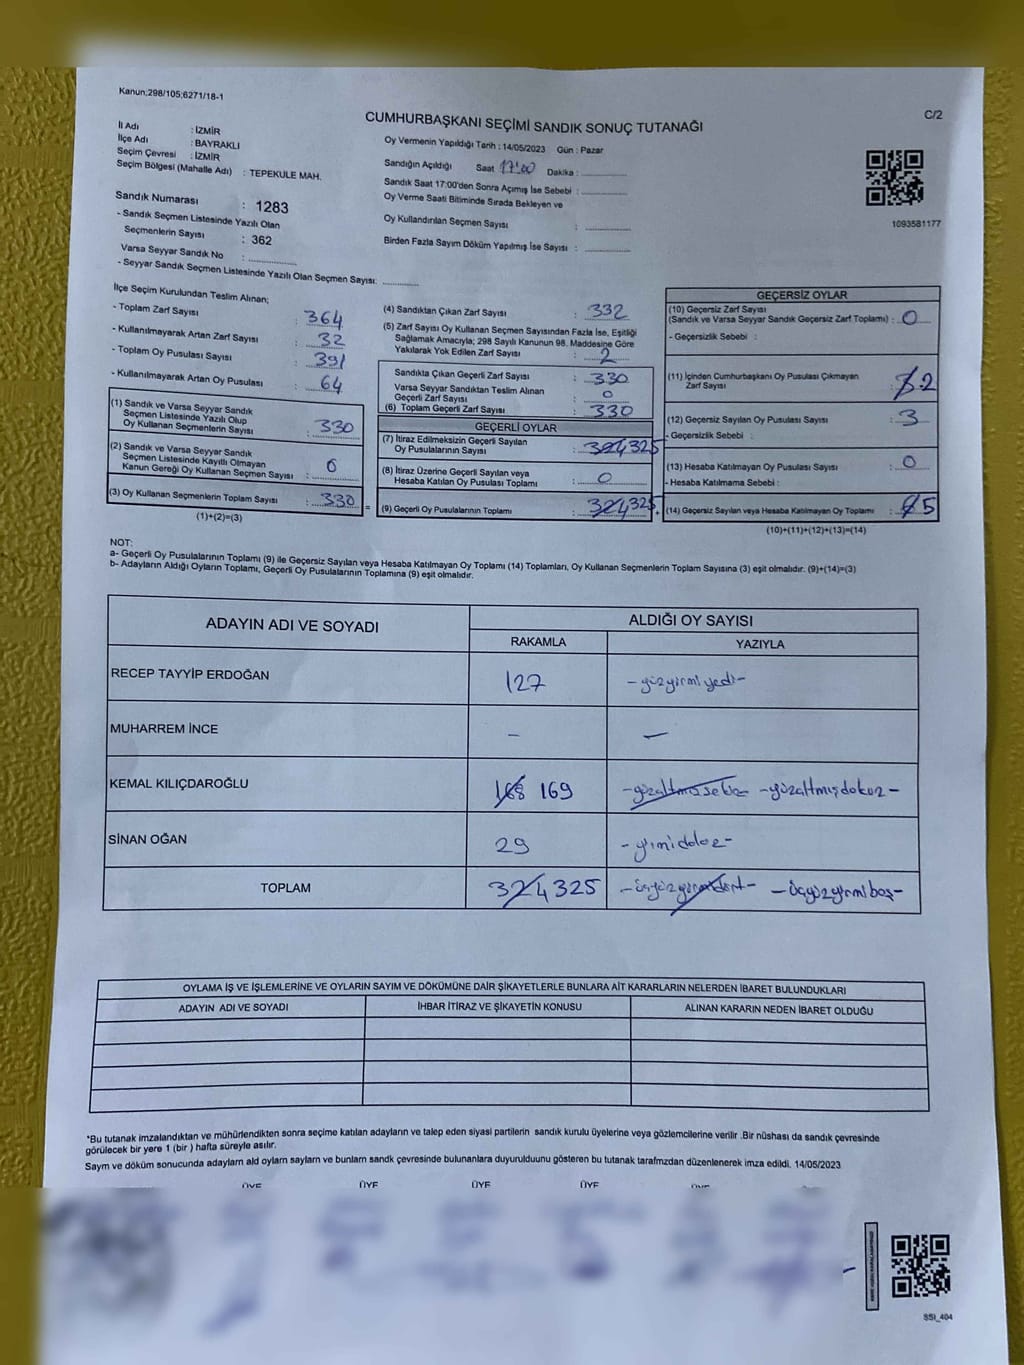 Kanun;298/105;6271/18-1
CUMHURBAŞKANI SEÇİMİ SANDIK SONUÇ TUTANAĞI
C/2
İl Adı : İZMİR
İlçe Adı : BAYRAKLI
Seçim Çevresi : İZMİR
Seçim Bölgesi (Mahalle Adı) : TEPEKULE MAH.
Sandık Numarası : 1283
- Sandık Seçmen Listesinde Yazılı Olan
Seçmenlerin Sayısı : 362
Varsa Seyyar Sandık No :
- Seyyar Sandık Seçmen Listesinde Yazılı Olan Seçmen Sayısı:
Oy Vermenin Yapıldığı Tarih : 14/05/2023 Gün : Pazar
Sandığın Açıldığı Saat 17:00 Dakika :
Sandık Saat 17:00'den Sonra Açımış İse Sebebi :
Oy Verme Saati Bitiminde Sırada Bekleyen ve
Oy Kullandırılan Seçmen Sayısı :
Birden Fazla Sayım Döküm Yapılmış İse Sayısı :
1093581177
İlçe Seçim Kurulundan Teslim Alınan;
- Toplam Zarf Sayısı : 364
- Kullanılmayarak Artan Zarf Sayısı : 32
- Toplam Oy Pusulası Sayısı : 391
- Kullanılmayarak Artan Oy Pusulası : 64
(1) Sandık ve Varsa Seyyar Sandık
Seçmen Listesinde Yazılı Olup
Oy Kullanan Seçmenlerin Sayısı : 330
(2) Sandık ve Varsa Seyyar Sandık
Seçmen Listesinde Kayıtlı Olmayan
Kanun Gereği Oy Kullanan Seçmen Sayısı : 0
(3) Oy Kullanan Seçmenlerin Toplam Sayısı : 330
(1)+(2)=(3)
(4) Sandıktan Çıkan Zarf Sayısı : 332
(5) Zarf Sayısı Oy Kullanan Seçmen Sayısından Fazla İse, Eşitliği
Sağlamak Amacıyla; 298 Sayılı Kanunun 98. Maddesine Göre
Yakılarak Yok Edilen Zarf Sayısı : 2
Sandıkta Çıkan Geçerli Zarf Sayısı : 330
Varsa Seyyar Sandıktan Teslim Alınan
Geçerli Zarf Sayısı : 0
(6) Toplam Geçerli Zarf Sayısı : 330
GEÇERLİ OYLAR
(7) İtiraz Edilmeksizin Geçerli Sayılan
Oy Pusulalarının Sayısı : 324 325
(8) İtiraz Üzerine Geçerli Sayılan veya
Hesaba Katılan Oy Pusulası Toplamı : 0
= (9) Geçerli Oy Pusulalarının Toplamı : 324 325 +
GEÇERSİZ OYLAR
(10) Geçersiz Zarf Sayısı
(Sandık ve Varsa Seyyar Sandık Geçersiz Zarf Toplamı) : 0
- Geçersizlik Sebebi :
(11) İçinden Cumhurbaşkanı Oy Pusulası Çıkmayan
Zarf Sayısı : 2
(12) Geçersiz Sayılan Oy Pusulası Sayısı : 3
- Geçersizlik Sebebi :
(13) Hesaba Katılmayan Oy Pusulası Sayısı : 0
- Hesaba Katılmama Sebebi :
(14) Geçersiz Sayılan veya Hesaba Katılmayan Oy Toplamı : 5
(10)+(11)+(12)+(13)=(14)
NOT:
a- Geçerli Oy Pusulalarının Toplamı (9) ile Geçersiz Sayılan veya Hesaba Katılmayan Oy Toplamı (14) Toplamları, Oy Kullanan Seçmenlerin Toplam Sayısına (3) eşit olmalıdır. (9)+(14)=(3)
b- Adayların Aldığı Oyların Toplamı, Geçerli Oy Pusulalarının Toplamına (9) eşit olmalıdır.
ADAYIN ADI VE SOYADI
ALDIĞI OY SAYISI
RAKAMLA YAZIYLA
RECEP TAYYİP ERDOĞAN 127 -yüzyirmiyedi-
MUHARREM İNCE - -
KEMAL KILIÇDAROĞLU 168 169 -yüzaltmışsekiz- -yüzaltmışdokuz-
SİNAN OĞAN 29
TOPLAM 324 325 -üçyüzyirmidört- -üçyüzyirmibeş-
OYLAMA İŞ VE İŞLEMLERİNE VE OYLARIN SAYIM VE DÖKÜMÜNE DAİR ŞİKAYETLERLE BUNLARA AİT KARARLARIN NELERDEN İBARET BULUNDUKLARI
ADAYIN ADI VE SOYADI İHBAR İTİRAZ VE ŞİKAYETİN KONUSU ALINAN KARARIN NEDEN İBARET OLDUĞU
*Bu tutanak imzalandıktan ve mühürlendikten sonra seçime katılan adayların ve talep eden siyasi partilerin sandık kurulu üyelerine veya gözlemcilerine verilir .Bir nüshası da sandık çevresinde
görülecek bir yere 1 (bir ) hafta süreyle asılır.
Sayım ve döküm sonucunda adayların ald oyların sayların ve bunların sandk çevresinde bulunanlara duyurulduunu gösteren bu tutanak tarafmzdan düzenlenerek imza edildi. 14/05/2023
ÜYE ÜYE ÜYE ÜYE
SSI_404